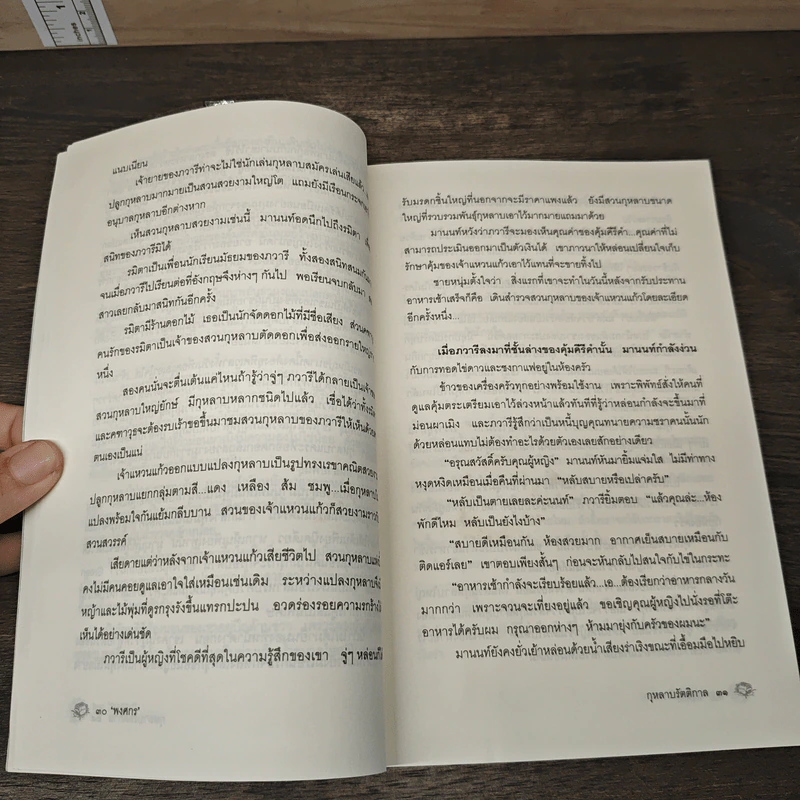 inches
1
2
แนบเนียน
เจ้ายายของภวารีท่าจะไม่ใช่นักเล่นกุหลาบสมัครเล่นเสียแล้ว
ปลูกกุหลาบมากมายเป็นสวนสวยงามใหญ่โต แถมยังมีเรือนกระจก
อนุบาลกุหลาบอีกต่างหาก
เห็นสวนกุหลาบสวยงามเช่นนี้ มานนท์อดนึกไปถึงรมิตา
สนิทของภวารีมิได้
รมิตาเป็นเพื่อนนักเรียนมัธยมของภวารี ทั้งสองสนิทสนมกัน
จนเมื่อภวารีไปเรียนต่อที่อังกฤษจึงห่างๆ กันไป พอเรียนจบกลับมา
สาวเลยกลับมาสนิทกันอีกครั้ง
รมิตามีร้านดอกไม้ เธอเป็นนักจัดดอกไม้ที่มีชื่อเสียง ส่วน
คนรักของรมิตาเป็นเจ้าของสวนกุหลาบตัดดอกเพื่อส่งออกรายใหญ่
หนึ่ง
สองคนนั่นจะตื่นเต้นแค่ไหนถ้ารู้ว่าจู่ๆ ภวารีได้กลายเป็นเจ้าของ
สวนกุหลาบใหญ่ยักษ์ มีกุหลาบหลากชนิดไปแล้ว เชื่อได้ว่าทั้งรมิตา
และคฑาวุธจะต้องรบเร้าขอขึ้นมาชมสวนกุหลาบของภวารีให้เห็นด้วยตา
ตนเองเป็นแน่
เจ้าแหวนแก้วออกแบบแปลงกุหลาบเป็นรูปทรงเรขาคณิตสวยงาม
ปลูกกุหลาบแยกกลุ่มตามสี...แดง เหลือง ส้ม ชมพู...เมื่อกุหลาบใน
แปลงพร้อมใจกันแย้มกลีบบาน สวนของเจ้าแหวนแก้วก็สวยงามราว
สวนสวรรค์
เสียดายแต่ว่าหลังจากเจ้าแหวนแก้วเสียชีวิตไป สวนกุหลาบแห่งนี้
คงไม่มีคนคอยดูแลเอาใจใส่เหมือนเช่นเดิม ระหว่างแปลงกุหลาบจึงมี
หญ้าและไม้พุ่มที่ดูรกรุงรังขึ้นแทรกปะปน อวดร่องรอยความรกร้างให้
เห็นได้อย่างเด่นชัด
ภวารีเป็นผู้หญิงที่โชคดีที่สุดในความรู้สึกของเขา จู่ๆ หล่อนก็ได้
๓๐ 'พงศกร'
รับมรดกชิ้นใหญ่ที่นอกจากจะมีราคาแพงแล้ว ยังมีสวนกุหลาบขนาด
ใหญ่ที่รวบรวมพันธุ์กุหลาบเอาไว้มากมายแถมมาด้วย
มานนท์หวังว่าภวารีจะมองเห็นคุณค่าของคุ้มคีรีคำ...คุณค่าที่ไม่
สามารถประเมินออกมาเป็นตัวเงินได้ เขาภาวนาให้หล่อนเปลี่ยนใจเก็บ
รักษาคุ้มของเจ้าแหวนแก้วเอาไว้แทนที่จะขายทิ้งไป
ชายหนุ่มตั้งใจว่า สิ่งแรกที่เขาจะทำในวันนี้หลังจากรับประทาน
อาหารเช้าเสร็จก็คือ เดินสำรวจสวนกุหลาบของเจ้าแหวนแก้วโดยละเอียด
อีกครั้งหนึ่ง...
เมื่อภวารีลงมาที่ชั้นล่างของคุ้มคีรีคำนั้น มานนท์กำลังง่วน
กับการทอดไข่ดาวและชงกาแฟอยู่ในห้องครัว
ข้าวของเครื่องครัวทุกอย่างพร้อมใช้งาน เพราะพิพัทธ์สั่งให้คนที่
ดูแลคุ้มตระเตรียมเอาไว้ล่วงหน้าแล้วทันทีที่รู้ว่าหล่อนกำลังจะขึ้นมาที่
ม่อนผาเมิง และภวารีรู้สึกว่าเป็นหนี้บุญคุณทนายความชราคนนั้นนัก
ด้วยหล่อนแทบไม่ต้องทำอะไรด้วยตัวเองเลยสักอย่างเดียว
“อรุณสวัสดิ์ครับคุณผู้หญิง” มานนท์หันมายิ้มแจ่มใส ไม่มีท่าทาง
หงุดหงิดเหมือนเมื่อคืนที่ผ่านมา “หลับสบายหรือเปล่าครับ”
“หลับเป็นตายเลยละค่ะนนท์” ภวารียิ้มตอบ “แล้วคุณล่ะ...ห้อง
พักดีไหม หลับเป็นยังไงบ้าง”
“สบายดีเหมือนกัน ห้องสวยมาก อากาศเย็นสบายเหมือนกับ
ติดแอร์เลย” เขาตอบเพียงสั้นๆ ก่อนจะหันกลับไปสนใจกับไข่ในกระทะ
“อาหารเช้ากำลังจะเรียบร้อยแล้ว...เอ...ต้องเรียกว่าอาหารกลางวัน
มากกว่า เพราะจวนจะเที่ยงอยู่แล้ว ขอเชิญคุณผู้หญิงไปนั่งรอที่โต๊ะ
อาหารได้ครับผม กรุณาออกห่างๆ ห้ามมายุ่งกับครัวของผมนะ”
มานนท์ยังคงยั่วเย้าหล่อนด้วยน้ำเสียงร่าเริงขณะที่เอื้อมมือไปหยิบ
กุหลาบรัตติกาล ๓๑